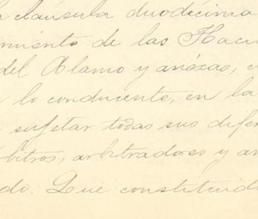 cláusula duodécima
miento de las Haci
del Alamo y anexas, e
lo conducente, en la
sujetar todas sus difer
bitros, arbitradores y am
do. Que constituid